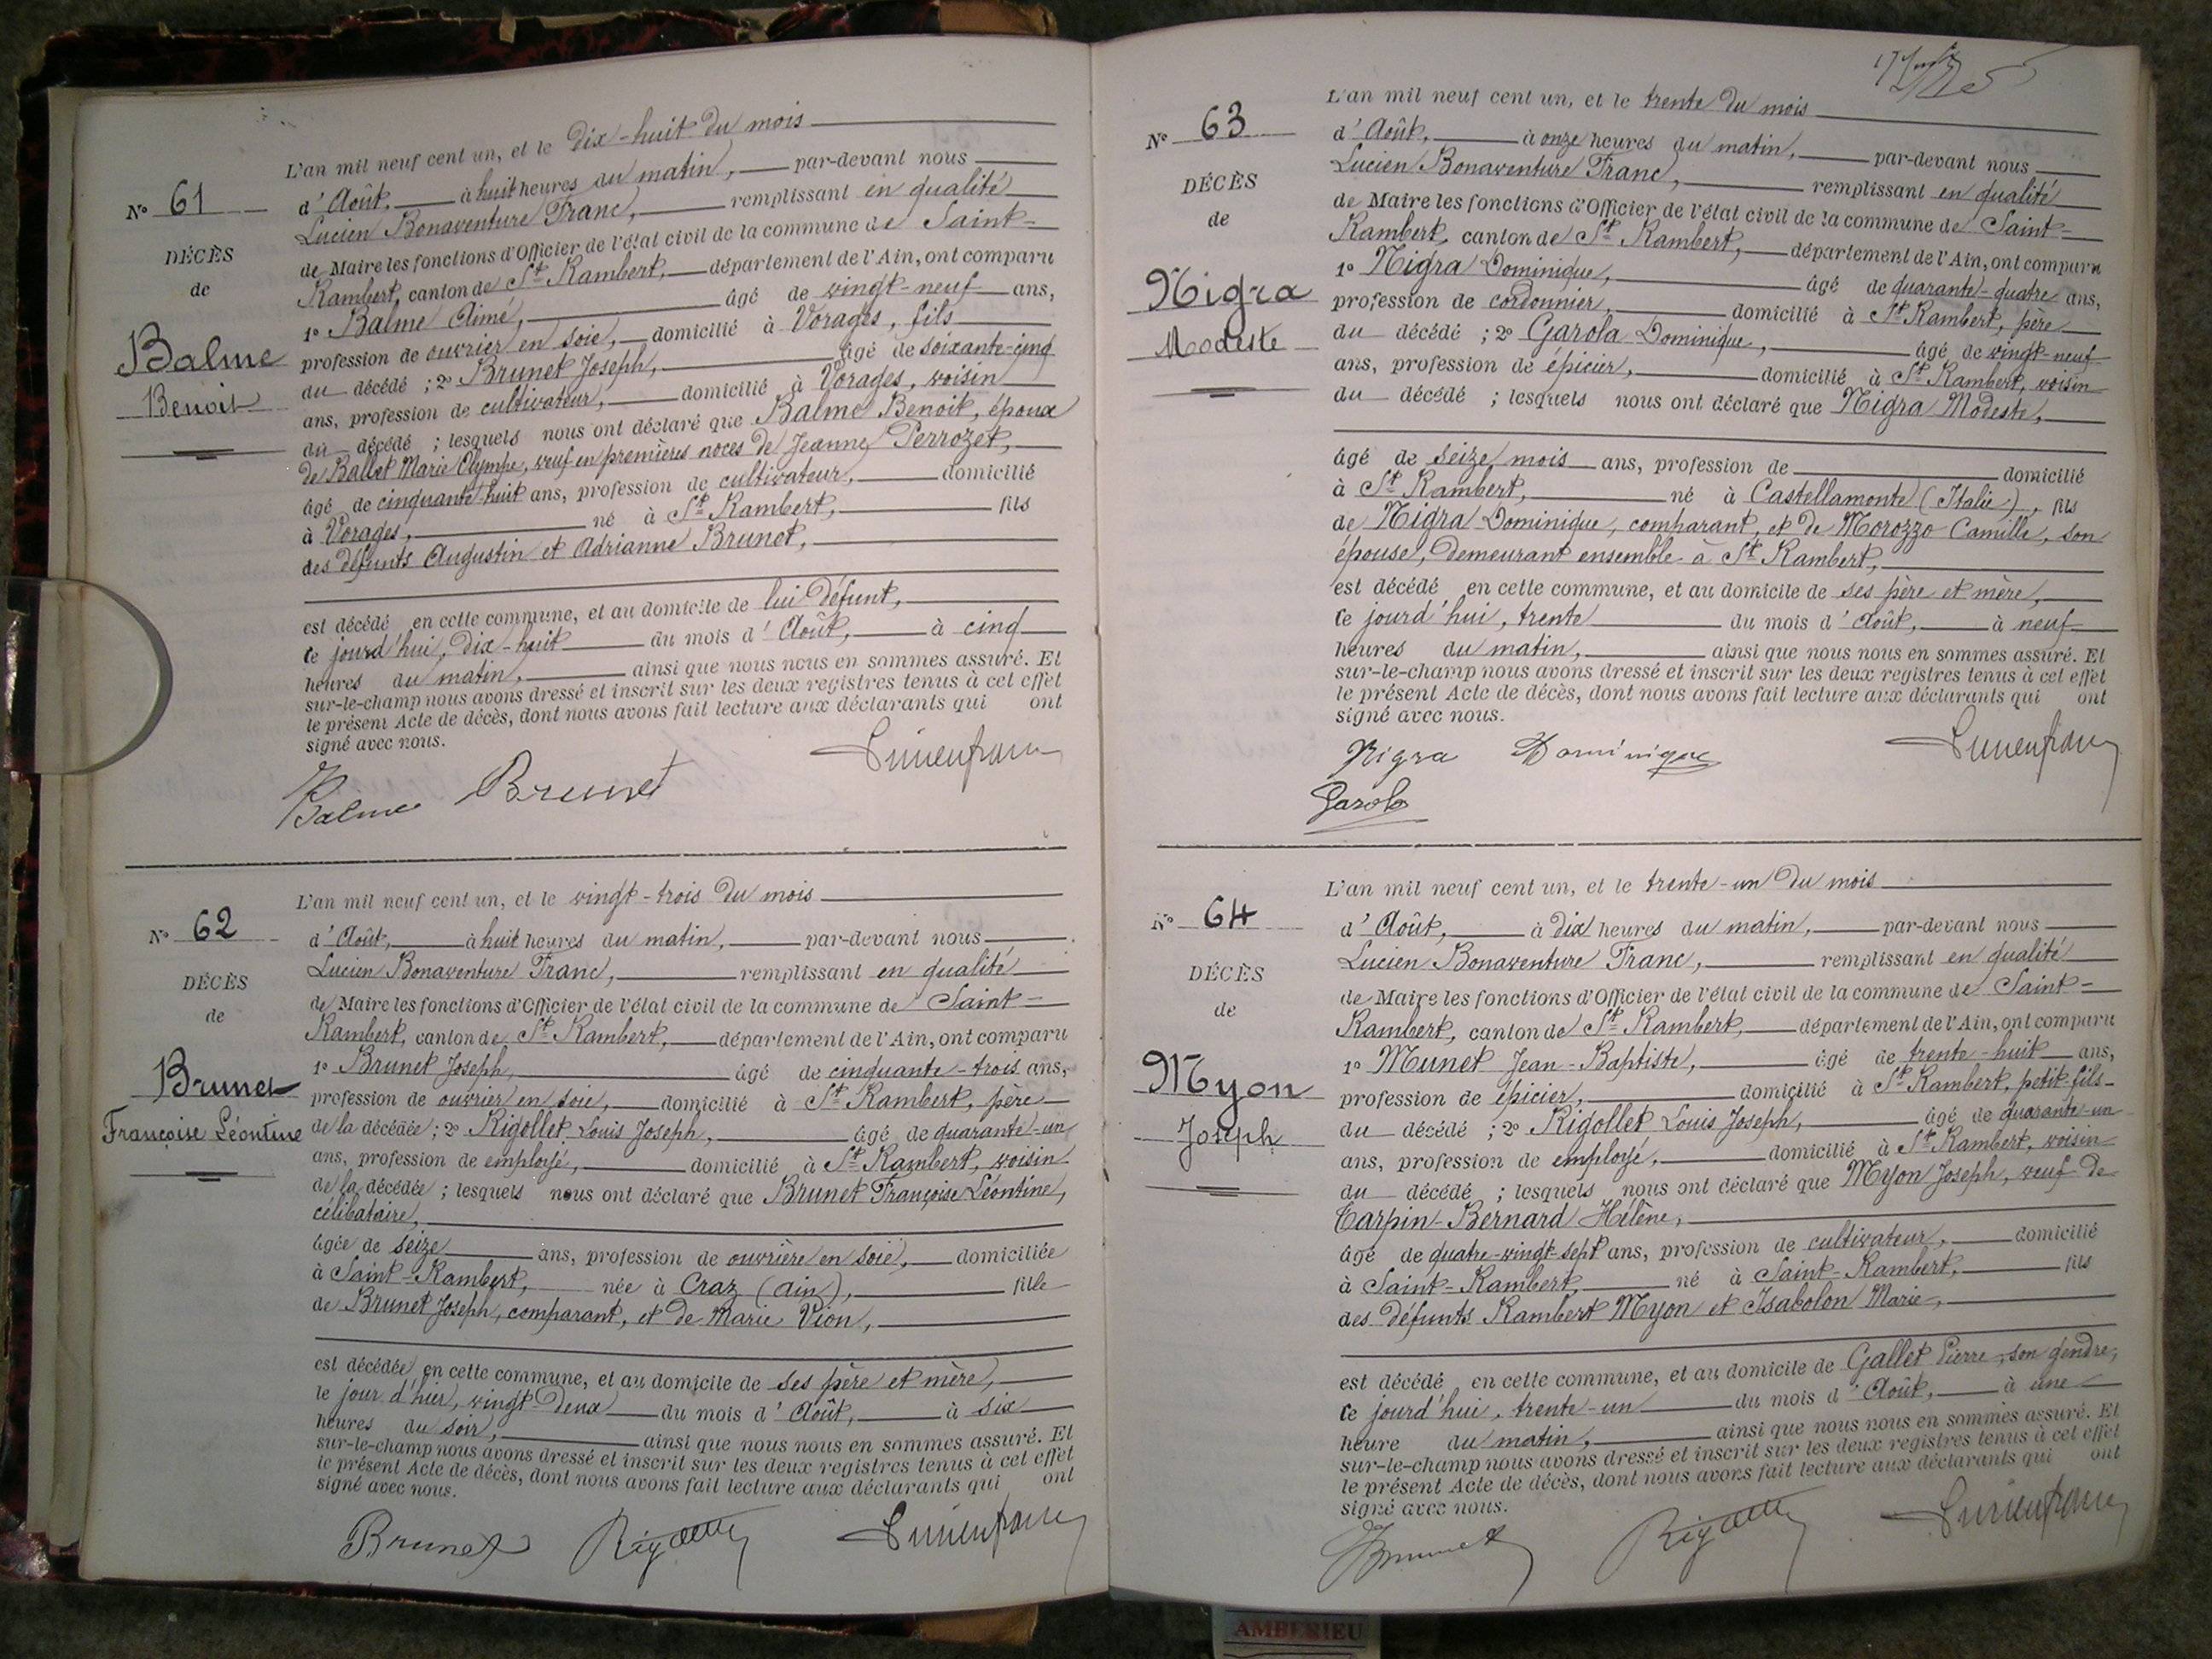 N° 61
DÉCÈS
de
Balme
Benoit
L'an mil neuf cent un, et le Dix-huit du mois
d'Août, à huit heures du matin, par-devant nous
Lucien Bonaventure Franc, remplissant en qualité
de Maire les fonctions d'Officier de l'état civil de la commune de Saint-
Rambert, canton de St Rambert, département de l'Ain, ont comparu
1° Balme Aimé, âgé de vingt-neuf ans,
profession de ouvrier en soie, domicilié à Vorages, fils
du décédé ; 2° Brunet Joseph, âgé de soixante-cinq
ans, profession de cultivateur, domicilié à Vorages, voisin
du décédé ; lesquels nous ont déclaré que Balme Benoit, époux
de Ballet Marie Olympe, veuf en premières noces de Jeanne Perrozet,
âgé de cinquante-huit ans, profession de cultivateur, domicilié
à Vorages, né à St Rambert, fils
des défunts Augustin et Adrianne Brunet,
est décédé en cette commune, et au domicile de lui défunt,
ce jourd'hui, dix-huit du mois d'Août, à cinq
heures du matin, ainsi que nous nous en sommes assuré. Et
sur-le-champ nous avons dressé et inscrit sur les deux registres tenus à cet effet
le présent Acte de décès, dont nous avons fait lecture aux déclarants qui ont
signé avec nous.
Balme Brunet Lucien franc
N° 62
DÉCÈS
de
Brunet
Françoise Léontine
L'an mil neuf cent un, et le vingt-trois du mois
d'Août, à huit heures du matin, par-devant nous
Lucien Bonaventure Franc, remplissant en qualité
de Maire les fonctions d'Officier de l'état civil de la commune de Saint-
Rambert, canton de St Rambert, département de l'Ain, ont comparu
1° Brunet Joseph, âgé de cinquante-trois ans,
profession de ouvrier en soie, domicilié à St Rambert, père
de la décédée ; 2° Rigollet Louis Joseph, âgé de quarante-un
ans, profession de employé, domicilié à St Rambert, voisin
de la décédée ; lesquels nous ont déclaré que Brunet Françoise Léontine,
célibataire,
âgée de seize ans, profession de ouvrière en soie, domiciliée
à Saint-Rambert, née à Craz (Ain), fille
de Brunet Joseph, comparant, et de Marie Vion,
est décédée en cette commune, et au domicile de ses père et mère,
le jour d'hier, vingt-deux du mois d'Août, à six
heures du soir, ainsi que nous nous en sommes assuré. Et
sur-le-champ nous avons dressé et inscrit sur les deux registres tenus à cet effet
le présent Acte de décès, dont nous avons fait lecture aux déclarants qui ont
signé avec nous.
Brunet Rigollet Lucien franc
N° 63
DÉCÈS
de
Nigra
Modeste
L'an mil neuf cent un, et le trente du mois
d'Août, à onze heures du matin, par-devant nous
Lucien Bonaventure Franc, remplissant en qualité
de Maire les fonctions d'Officier de l'état civil de la commune de Saint-
Rambert, canton de St Rambert, département de l'Ain, ont comparu
1° Nigra Dominique, âgé de quarante-quatre ans,
profession de cordonnier, domicilié à St Rambert, père
du décédé ; 2° Garola Dominique, âgé de vingt-neuf
ans, profession de épicier, domicilié à St Rambert, voisin
du décédé ; lesquels nous ont déclaré que Nigra Modeste,
âgé de seize mois ans, profession de domicilié
à St Rambert, né à Castellamonte (Italie), fils
de Nigra Dominique, comparant, et de Morozzo Camille, son
épouse, demeurant ensemble à St Rambert,
est décédé en cette commune, et au domicile de ses père et mère,
ce jourd'hui, trente du mois d'Août, à neuf
heures du matin, ainsi que nous nous en sommes assuré. Et
sur-le-champ nous avons dressé et inscrit sur les deux registres tenus à cet effet
le présent Acte de décès, dont nous avons fait lecture aux déclarants qui ont
signé avec nous.
Nigra Dominique Lucien franc
Garola
N° 64
DÉCÈS
de
Myon
Joseph
L'an mil neuf cent un, et le trente-un du mois
d'Août, à dix heures du matin, par-devant nous
Lucien Bonaventure Franc, remplissant en qualité
de Maire les fonctions d'Officier de l'état civil de la commune de Saint-
Rambert, canton de St Rambert, département de l'Ain, ont comparu
1° Munet Jean-Baptiste, âgé de trente-huit ans,
profession de épicier, domicilié à St Rambert, petit-fils
du décédé ; 2° Rigollet Louis Joseph, âgé de quarante-un
ans, profession de employé, domicilié à St Rambert, voisin
du décédé ; lesquels nous ont déclaré que Myon Joseph, veuf de
Tarpin-Bernard Hélène,
âgé de quatre-vingt-sept ans, profession de cultivateur, domicilié
à Saint-Rambert, né à Saint-Rambert, fils
des défunts Rambert Myon et Isabolon Marie,
est décédé en cette commune, et au domicile de Gallet Pierre, son gendre,
ce jourd'hui, trente-un du mois d'Août, à une
heure du matin, ainsi que nous nous en sommes assuré. Et
sur-le-champ nous avons dressé et inscrit sur les deux registres tenus à cet effet
le présent Acte de décès, dont nous avons fait lecture aux déclarants qui ont
signé avec nous.
Munet Rigollet Lucien franc
AMBERIEU